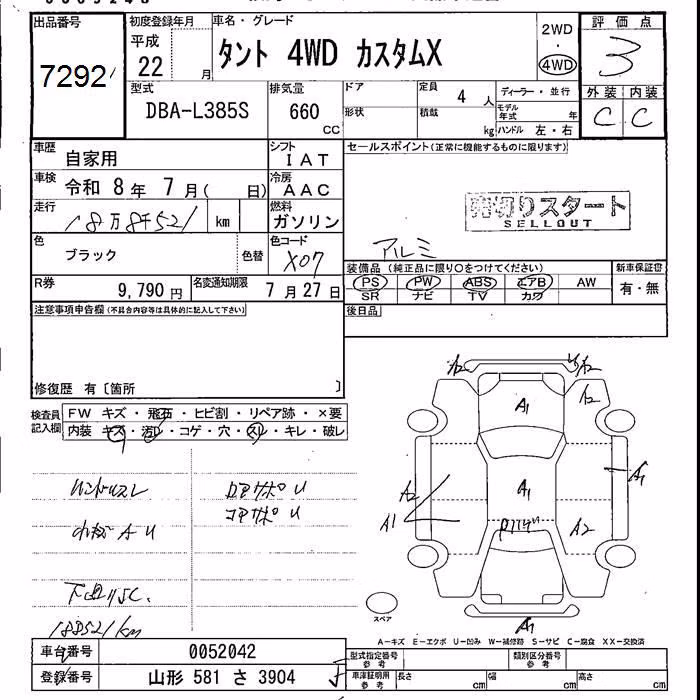 出品番号
7292
初度登録年月
平成
22 月
車名・グレード
タント 4WD カスタムX
2WD
・
4WD
評価点
3
外装 内装
C C
型式
DBA-L385S
排気量
660
CC
ドア
形状
定員
4 人
積載
kg
ディーラー・並行
モデル年式 年
ハンドル 左・右
車歴
自家用
シフト
IAT
車検
令和 8年 7月( 日)
冷房
AAC
走行
18万8千521 km
燃料
ガソリン
色
ブラック
色替
色コード
X07
R券
9,790 円
名変通知期限
7月27日
セールスポイント(正常に機能するものに限ります)
売切りスタート
SELLOUT
アルミ
装備品(純正品に限り○をつけてください)
PS PW ABS エアB AW
SR ナビ TV カワ
新車保証書
有・無
後日品
注意事項申告欄(不具合内容等は具体的に記入して下さい)
修復歴 有〔箇所 〕
検査員
記入欄
FW キズ・飛石・ヒビ割・リペア跡・×要
内装 キズ・汚レ・コゲ・穴・スレ・キレ・破レ
ハンドルスレ
小キズAU
下廻りSC.
188521km
A2
A2
A2
A1
A1
A1
A2
A1
A2
A1
スペア
A-キズ E-エクボ U-凹み W-補修跡 S-サビ C-腐食 XX-交換済
車台番号
0052042
登録番号
山形 581 さ 3904
型式指定番号
参考
類別区分番号
参考
車庫証明用
参考
長さ cm
幅 cm
高さ cm